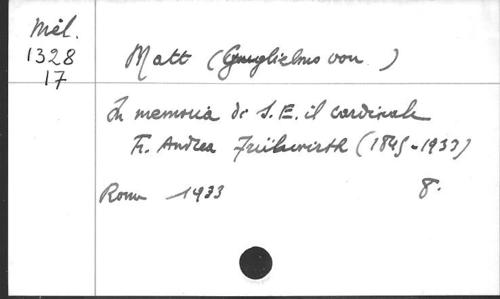 Mél.
1328
17
Matt (Guglielmo von )
In memoria di S.E. il cardinale
Fr. Andrea Frühwirth (1845-1933)
Roma 1933 8.